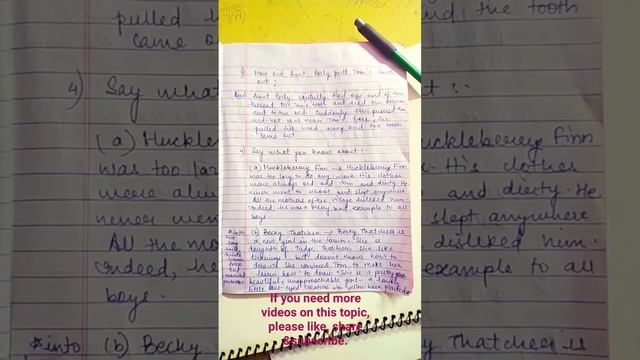 3) How did Aunt Polly pull Tom's tooth
out?
Ans) Aunt Polly skilfully tied one end of the
thread to Tom's tooth and tied the
out to the bed. Suddenly she pushed a
red hot near Tom's face, he
pulled his head away and the tooth
came out.
4) Say what you know about :-
(a) Huckleberry Finn → Huckleberry Finn
was too lazy to do any work. His clothes
were always old and torn and dirty. He
never went to school and slept anywhere
All the mothers of the village disliked him.
indeed, he was a very bad example to all
boys.
(b) Becky Thatcher → Becky Thatcher is
a new girl in the town. She is
daughter of Judge Thatcher. She like
but doesn't know how to
draw. She convinces Tom to make her
learn how to draw. She is a pretty
beautiful, unapproachable girl - a lovely
little blue-eyed creature with yellow hair plaited
If you need more
videos on this topic,
please like, share
&subscribe.
pulled h
came o
4) Say what
(a) Huckle
was too la
were alwa
never wen
All the mo
indeed, h
boys.
*into
(b) Becky
nd the tooth
t :-
uckleberry Finn
. His clothes
and dirty. He
slept anywhere
disliked him.
example to all
Thatcher is